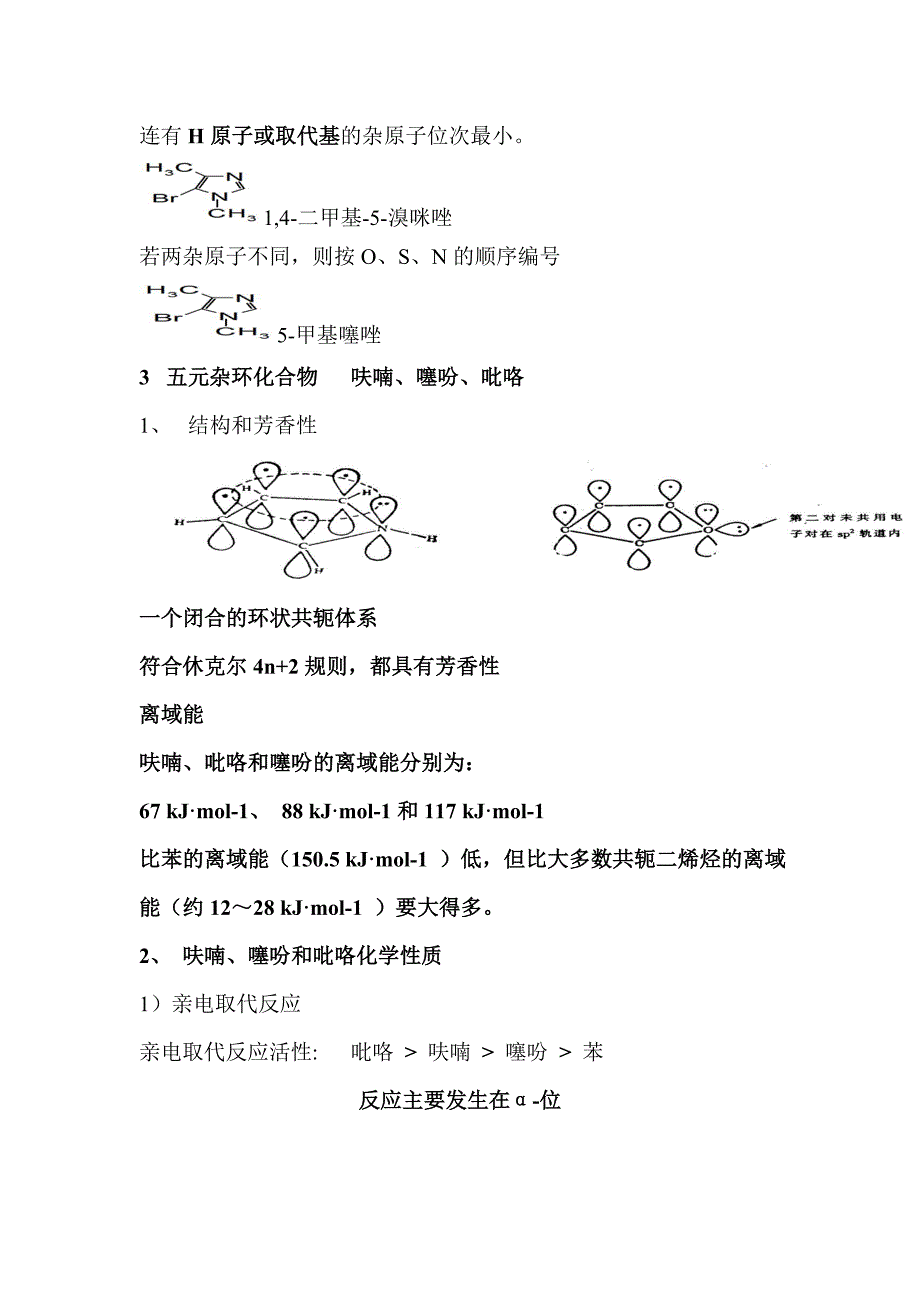 连有 H 原子或取代基的杂原子位次最小。
H3C
N
Br
N
CH3 1,4-二甲基-5-溴咪唑
若两杂原子不同，则按 O、S、N 的顺序编号
H3C
N
Br
N
CH3 5-甲基噻唑
3 五元杂环化合物 呋喃、噻吩、吡咯
1、 结构和芳香性
H C C H
H C N H
C H
C C
C O 第二对未共用电
C 子对在 sp2 轨道内
一个闭合的环状共轭体系
符合休克尔 4n+2 规则，都具有芳香性
离域能
呋喃、吡咯和噻吩的离域能分别为：
67 kJ·mol-1、 88 kJ·mol-1 和 117 kJ·mol-1
比苯的离域能（150.5 kJ·mol-1 ）低，但比大多数共轭二烯烃的离域
能（约 12～28 kJ·mol-1 ）要大得多。
2、 呋喃、噻吩和吡咯化学性质
1）亲电取代反应
亲电取代反应活性: 吡咯 > 呋喃 > 噻吩 > 苯
反应主要发生在 α-位